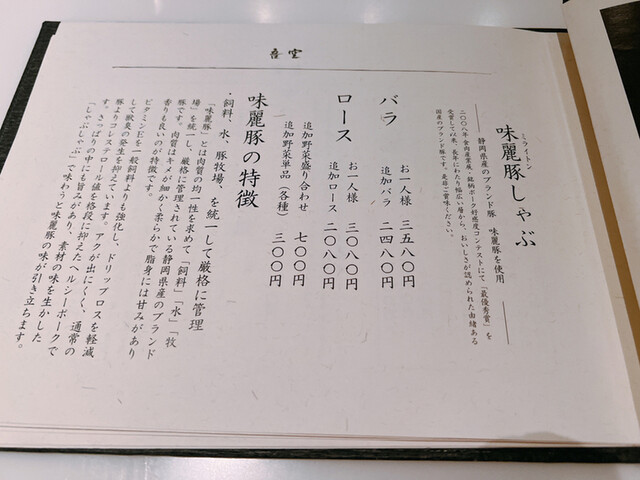 音空
ミライトン
味麗豚しゃぶ
静岡県産のブランド豚 味麗豚を使用
二〇〇八年食肉産業展・銘柄ポーク好感度コンテストにて「最優秀賞」を
受賞して以来、長年にわたり幅広い層から、おいしさが認められた由緒ある
国産のブランド豚です。是非ご賞味ください。
バラ
お一人様 三五八〇円
追加バラ 二四八〇円
ロース
お一人様 三〇八〇円
追加ロース 二〇八〇円
追加野菜盛り合わせ 七〇〇円
追加野菜単品(各種) 三〇〇円
味麗豚の特徴
・飼料、水、豚牧場、を統一して厳格に管理
「味麗豚」とは肉質の均一性を求めて「飼料」「水」「牧
場」を統一し、厳格に管理されている静岡県産のブランド
豚です。肉質はキメが細かく柔らかで脂身には甘みがあり
香りも良いのが特徴です。
ビタミンEを一般飼料よりも強化し、ドリップロスを軽減
して獣臭の発生を抑えています。アクが出にくく、通常の
豚よりコレステロール値を格段に抑えたヘルシーポークで
す。さっぱりの中にも旨みがあり、素材の味を生かした
「しゃぶしゃぶ」で味わうと味麗豚の味が引き立ちます。